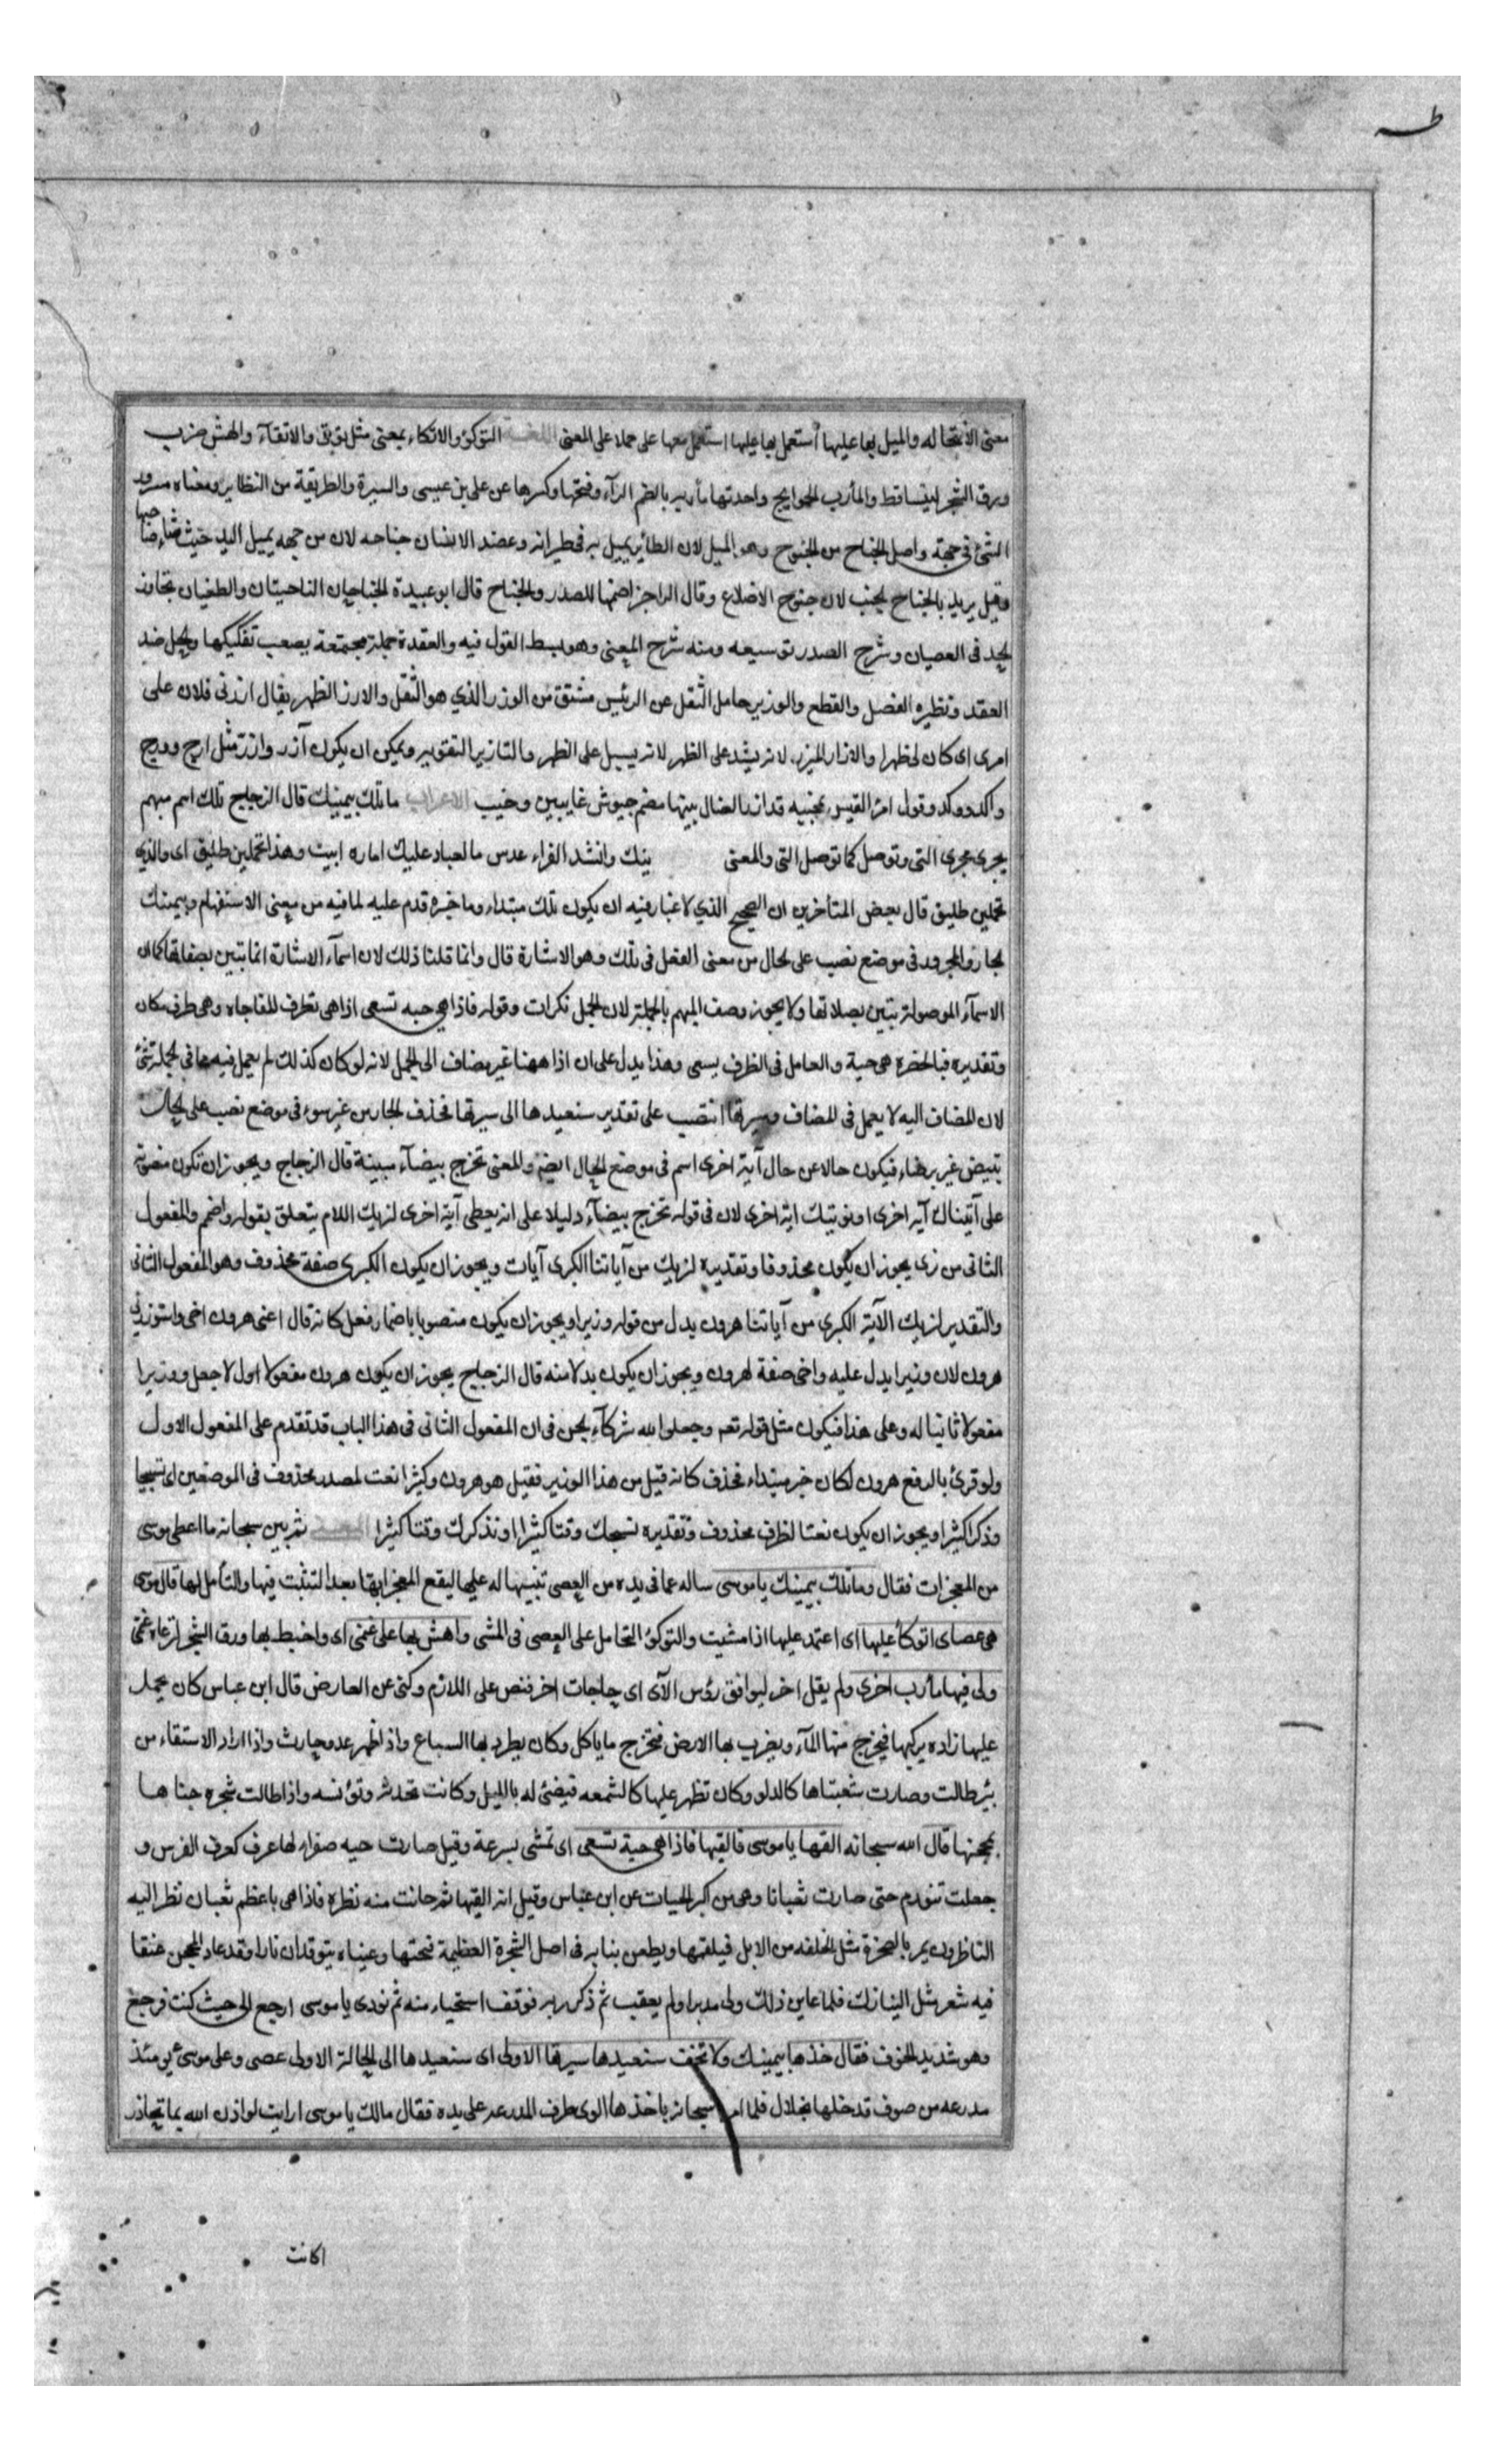 طه
معنى الانتحا له والميل بها عليها استعمل بها عليها استعمل معها على حملا على المعنى اللغــة التوكؤ والاتكاء بمعنى مثل توقى والاتقآء والهش ضرب
ورق الشجر ليتساقط والمأرب الحوايج واحدتها مأربة بالضم الرآء وفتحها وكسرها عن على بن عيسى والسيرة والطريقة من النظاير ومعناه مرور
الشئ فى جهة واصل الجناح من الجنوح وهو الميل لان الطائر يميل به فى طيرانه وعضد الانسان جناحه لان من جهه يميل اليد حيث شاء صاحبها
وقيل يريد بالجناح الجنب لان جنوح الاضلاع وقال الراجز اضمها للصدر والجناح قال ابو عبيدة الجناحان الناحيتان والطغيان تجاوز
الحد فى العصيان وشرح الصدر توسيعه ومنه شرح المعنى وهو بسط القول فيه والعقدة جملة مجتمعة يصعب تفكيكها والحل ضد
العقد ونظيره الفصل والقطع والوزير حامل الثقل عن الرئيس مشتق من الوزر الذي هو الثقل والازر الظهر يقال ازرنى فلان على
امرى اى كان لى ظهرا والازار الميزر لانه يشد على الظهر لانه يسبل على الظهر والتازير التقوية ويمكن ان يكون آزر وازرّ مثل ارخ وورخ
واكد ووكد وقول امرئ القيس بمحنيه قد ازر الضال بينها مضم جيوش غايبين وخيب الاعراب ما تلك بيمينك قال الزجاج تلك اسم مبهم
يجرى مجرى التى وتوصل كما توصل التى والمعنى ينك وانشد الفراء عدس ما لعباد عليك اماره ابيت وهذا تحملين طليق اى والذي
تحملين طليق قال بعض المتأخرين ان الصحيح الذي لا غبار فيه ان يكون تلك مبتداء وما خبره قدم عليه لما فيه من معنى الاستفهام وبيمينك
الجار والمجرور فى موضع نصب على الحال من معنى الفعل فى تلك وهو الاشارة قال وانما قلنا ذلك لان اسمآء الاشارة انما تتبين بصفاتها كما ان
الاسمآء الموصولة تتبين بصلاتها ولا يجوز وصف المبهم بالجملة لان الجمل نكرات وقوله فاذا هى حيه تسعى اذا هى تظرف للمفاجاه وهى ظرف مكان
وتقديره فبالحضرة هى حية والعامل فى الظرف يسعى وهذا يدل على ان اذا ههنا غير مضاف الى الجمل لانه لو كان كذلك لم يعمل فيه ما فى الجملة شئ
لان المضاف اليه لا يعمل فى المضاف وسيرتها انتصب على تقدير سنعيدها الى سيرتها فحذف الجار من غير سوء فى موضع نصب على الحال
تبيض غير برصاء فيكون حالا عن حال آية اخرى اسم فى موضع الحال ايضا والمعنى تخرج بيضآء مبينة قال الزجاج ويجوز ان تكون منصوبة
على آتيناك آية اخرى او نوتيك اية اخرى لان فى قوله تخرج بيضآء دليلا على انه يعطى آية اخرى لنريك اللام يتعلق بقوله واضمم والمفعول
الثانى من نرى يجوز ان يكون محذوفا وتقديره لنريك من آياتنا الكبرى آيات ويجوز ان يكون الكبرى صفة محذوف وهو المفعول الثانى
والتقدير لنريك الآية الكبرى من آياتنا هرون بدل من قوله وزيرا ويجوز ان يكون منصوبا باضمار فعل كانه قال اعنى هرون اخى واستوزر لى
هرون لان وزيرا يدل عليه واخى صفة لهرون ويجوز ان يكون بدلا منه قال الزجاج يجوز ان يكون هرون مفعولا اول لاجعل ووزيرا
مفعولا ثانيا له وعلى هذا فيكون مثل قوله تعم وجعلوا لله شركآء الجن فى ان المفعول الثانى فى هذا الباب قد تقدم على المفعول الاول
ولو قرئ بالرفع هرون لكان خبر مبتداء فحذف كانه قيل من هذا الوزير فقيل هو هرون وكثيرا نعت لمصدر محذوف فى الموضعين اى تسبيحا
وذكرا كثيرا ويجوز ان يكون نعتا لظرف محذوف وتقديره نسبحك وقتا كثيرا او نذكرك وقتا كثيرا المعنى ثم بين سبحانه ما اعطى موسى
من المعجزات فقال وما تلك بيمينك يا موسى ساله عما فى يده من العصى تنبيها له عليها ليقع المعجز ابها بعد التثبت فيها والتأمل لها قال موسى
هى عصاى اتوكأ عليها اى اعتمد عليها اذا مشيت والتوكؤ التحامل على العصى فى المشى واهش بها على غنمى اى واخبط بها ورق الشجر لترعاه غنمى
ولى فيها مأرب اخرى ولم يقل اخر ليوافق رؤس الآى اى حاجات اخر فنص على اللازم وكنى عن العارض قال ابن عباس كان يحمل
عليها زاده يركزها فيخرج منها المآء ويضرب بها الارض فتخرج ما ياكل وكان يطرد بها السباع واذا ظهر عدو حاربت واذا اراد الاستقاء من
بئر طالت وصارت شعبتاها كالدلو وكان تظهر عليها كالشمعه فيضئ له بالليل وكانت تحدثه وتؤنسه واذا طالت شجره حناها
بمحجنها قال الله سبحانه القها يا موسى فالقيها فاذا هى حية تسعى اى تمشى بسرعة وقيل صارت حيه صفراء لها عرف كعرف الفرس و
جعلت تتورم حتى صارت ثعبانا وهى من اكبر الحيات عن ابن عباس وقيل انه القيها ثم حانت منه نظره فاذا هى باعظم ثعبان نظر اليه
الناظرون يمر بالصخرة مثل الخلفه من الابل فيلقمها ويطعن بنابه فى اصل الشجرة العظيمة فتحتها وعيناه يتوقدان نارا وقد عاد المحجن عنقا
فيه شعر مثل النيازك فلما عاين ذلك ولى مدبرا ولم يعقب ثم ذكر ربه فوقف استحياء منه ثم نودى يا موسى ارجع الى حيث كنت فرجع
وهو شديد الخوف فقال خذها بيمينك ولا تخف سنعيدها سيرتها الاولى اى سنعيدها الى الحالة الاولى عصى وعلى موسى يومئذ
مدرعه من صوف قد خلها بخلال فلما امره سبحانه باخذها الوى طرف المدرعه على يده فقال مالك يا موسى ارايت لو اذن الله بما تحاذر
اكانت